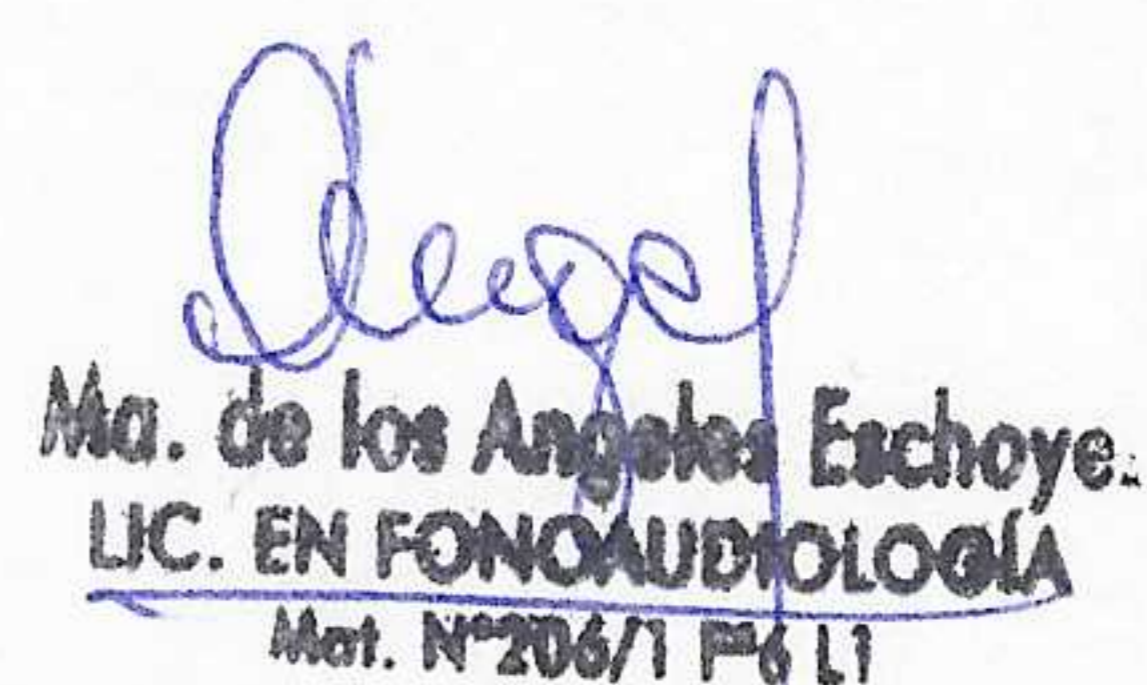 Ma. de los Angeles Eschoye.
LIC. EN FONOAUDIOLOGÍA
Mat. N°206/1 Fº6 L1